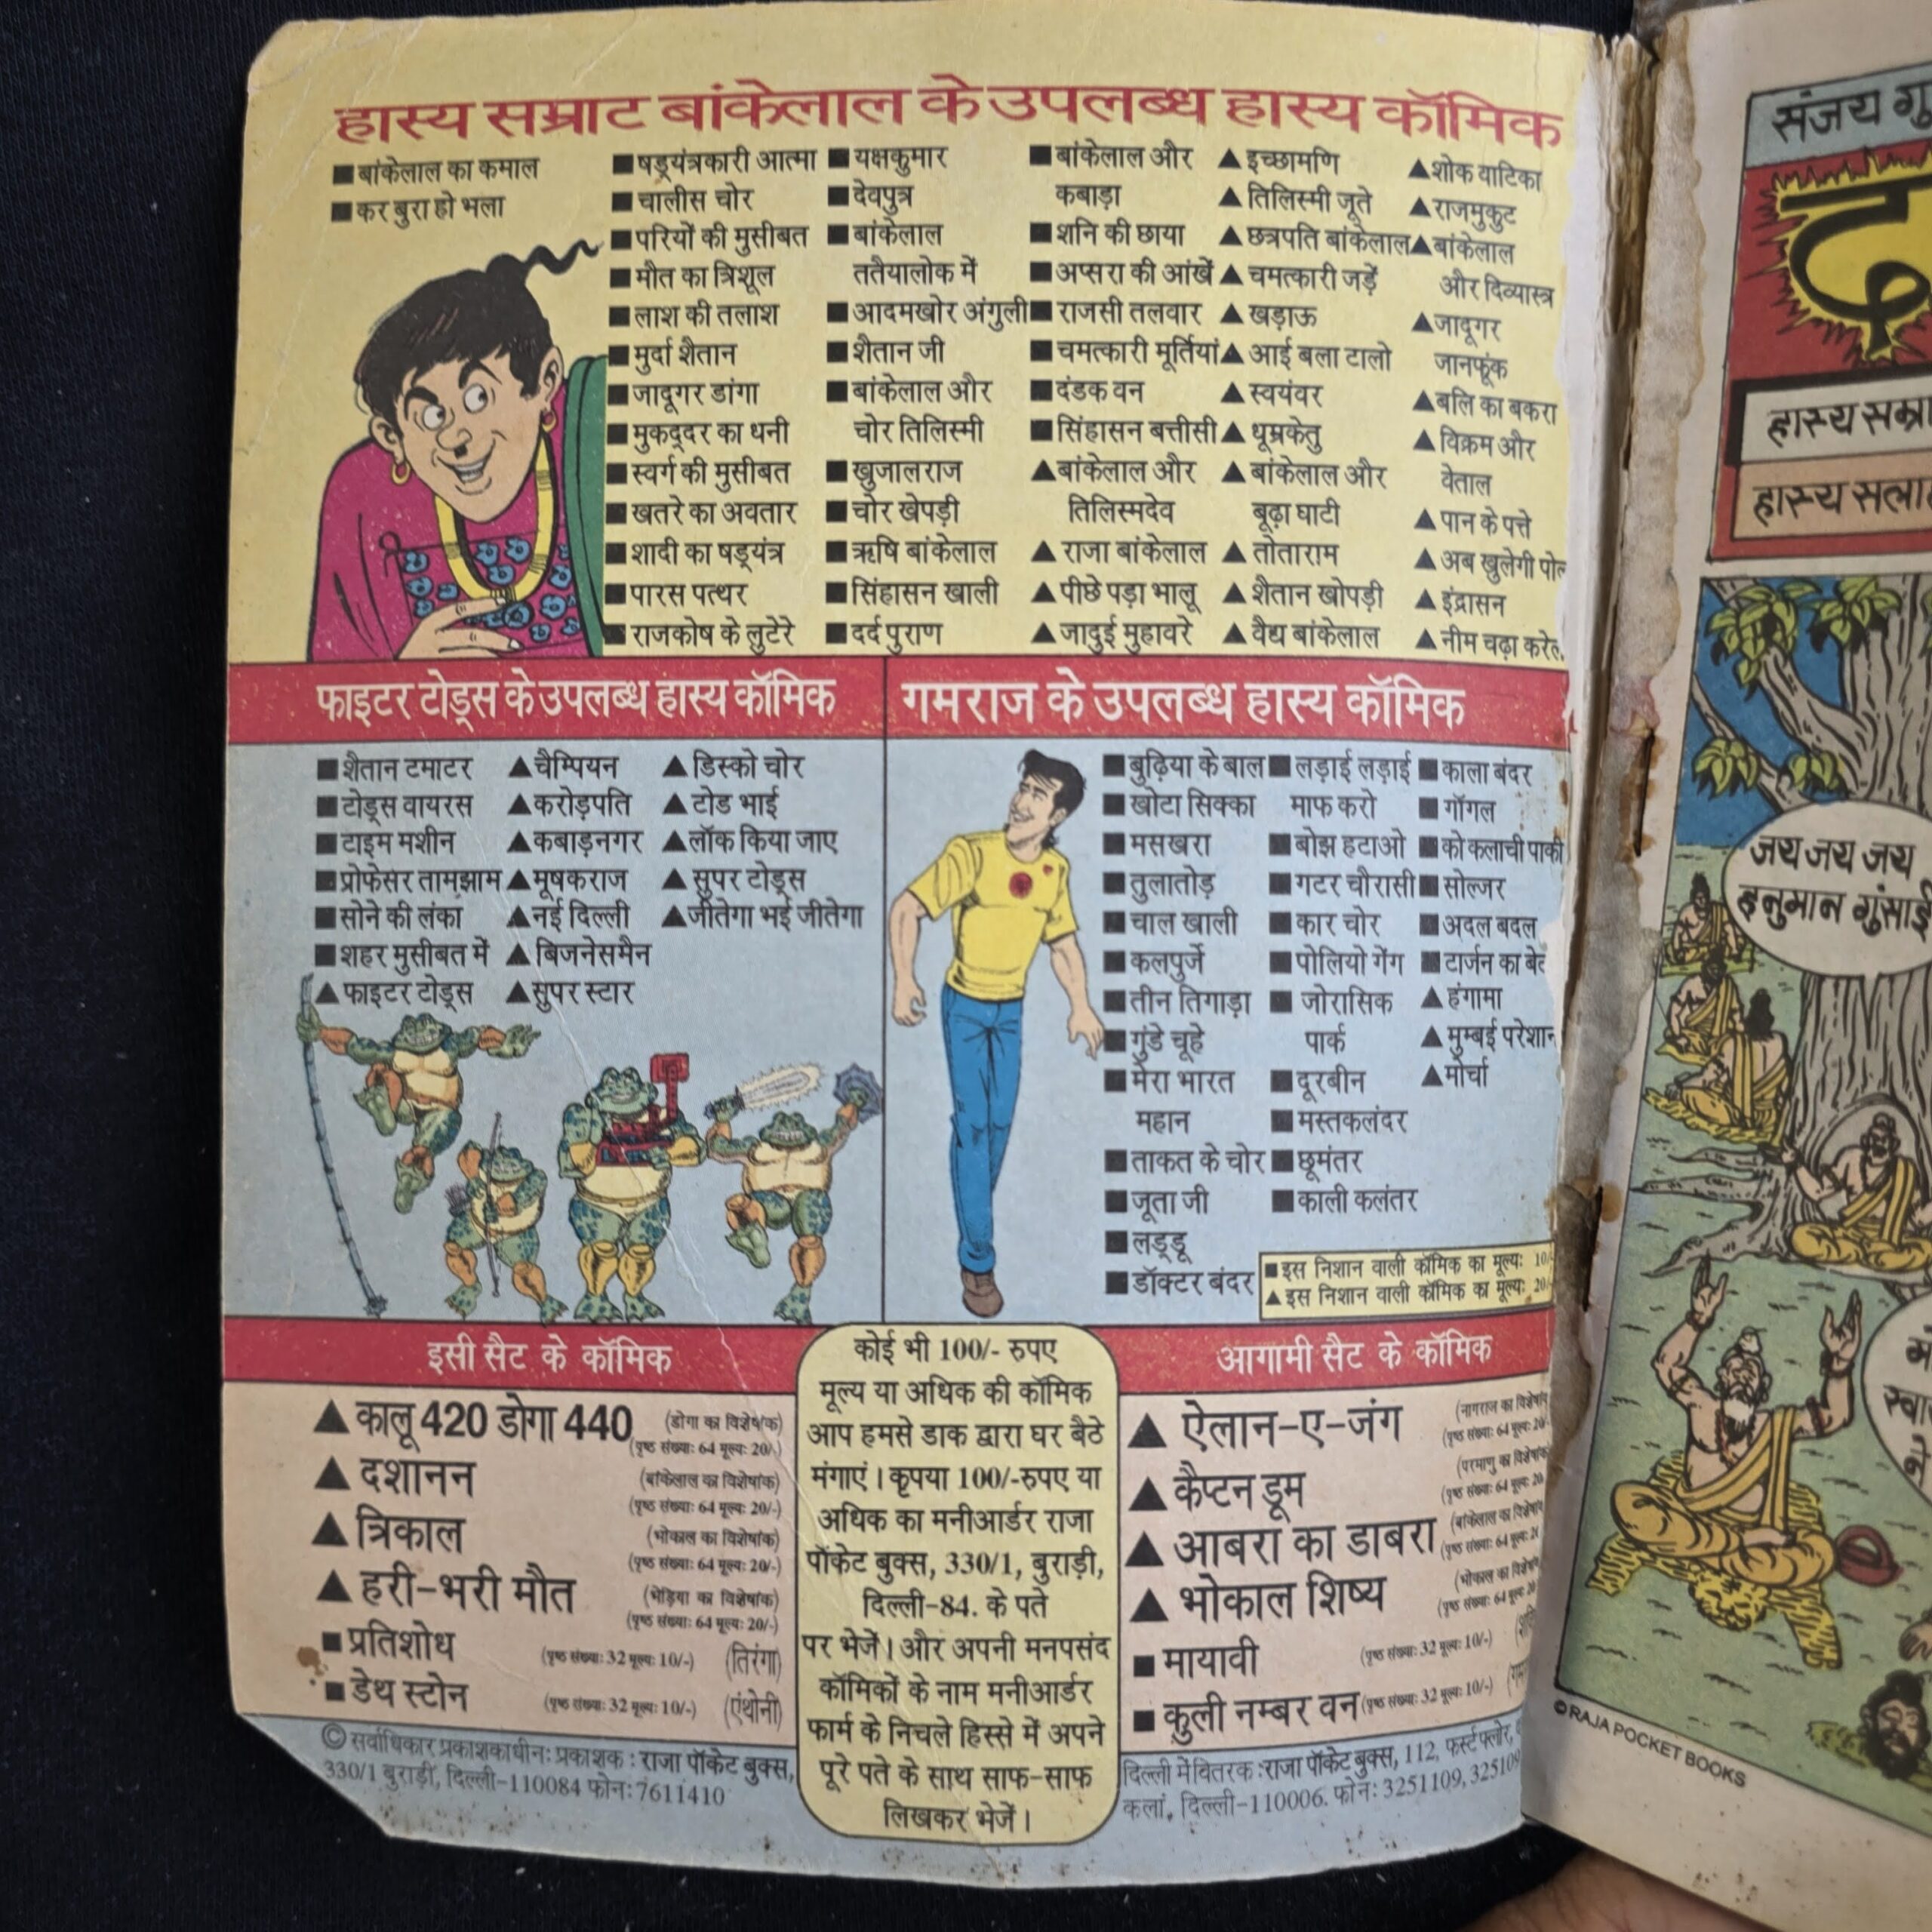 हास्य सम्राट बांकेलाल के उपलब्ध हास्य कॉमिक
■ बांकेलाल का कमाल
■ कर बुरा हो भला
■ षड्यंत्रकारी आत्मा
■ चालीस चोर
■ परियों की मुसीबत
■ मौत का त्रिशूल
■ लाश की तलाश
■ मुर्दा शैतान
■ जादूगर डांगा
■ मुकद्दर का धनी
■ स्वर्ग की मुसीबत
■ खतरे का अवतार
■ शादी का षड्यंत्र
■ पारस पत्थर
■ राजकोष के लुटेरे
■ यक्षकुमार
■ देवपुत्र
■ बांकेलाल
ततैयालोक में
■ आदमखोर अंगुली
■ शैतान जी
■ बांकेलाल और
चोर तिलिस्मी
■ खुजालराज
■ चोर खेपड़ी
■ ऋषि बांकेलाल
■ सिंहासन खाली
■ दर्द पुराण
■ बांकेलाल और
कबाड़ा
■ शनि की छाया
■ अप्सरा की आंखें
■ राजसी तलवार
■ चमत्कारी मूर्तियां
■ दंडक वन
■ सिंहासन बत्तीसी
▲ बांकेलाल और
तिलिस्मदेव
▲ राजा बांकेलाल
▲ पीछे पड़ा भालू
▲ जादुई मुहावरे
▲ इच्छामणि
▲ तिलिस्मी जूते
▲ छत्रपति बांकेलाल
▲ चमत्कारी जड़ें
▲ खड़ाऊ
▲ आई बला टालो
▲ स्वयंवर
▲ धूम्रकेतु
▲ बांकेलाल और
बूढ़ा घाटी
▲ तोताराम
▲ शैतान खोपड़ी
▲ वैद्य बांकेलाल
▲ शोक वाटिका
▲ राजमुकुट
▲ बांकेलाल
और दिव्यास्त्र
▲ जादूगर
जानफूंक
▲ बलि का बकरा
▲ विक्रम और
वेताल
▲ पान के पत्ते
▲ अब खुलेगी
▲ इंद्रासन
▲ नीम चढ़ा
फाइटर टोड्स के उपलब्ध हास्य कॉमिक
■ शैतान टमाटर
■ टोड्स वायरस
■ टाइम मशीन
■ प्रोफेसर तामझाम
■ सोने की लंका
■ शहर मुसीबत में
▲ फाइटर टोड्स
▲ चैम्पियन
▲ करोड़पति
▲ कबाड़नगर
▲ मूषकराज
▲ नई दिल्ली
▲ बिजनेसमैन
▲ सुपर स्टार
▲ डिस्को चोर
▲ टोड भाई
▲ लॉक किया जाए
▲ सुपर टोड्स
▲ जीतेगा भई जीतेगा
गमराज के उपलब्ध हास्य कॉमिक
■ बुढ़िया के बाल
■ खोटा सिक्का
■ मसखरा
■ तुलातोड़
■ चाल खाली
■ कलपुर्जे
■ तीन तिगाड़ा
■ गुंडे चूहे
■ मेरा भारत
महान
■ ताकत के चोर
■ जूता जी
■ लड्डू
■ डॉक्टर बंदर
■ लड़ाई लड़ाई
माफ करो
■ बोझ हटाओ
■ गटर चौरासी
■ कार चोर
■ पोलियो गेंग
■ जोरासिक
पार्क
■ दूरबीन
■ मस्तकलंदर
■ छूमंतर
■ काली कलंतर
■ काला बंदर
■ गॉगल
■ को कलाची पाकी
■ सोल्जर
■ अदल बदल
■ टार्जन का
▲ हंगामा
▲ मुम्बई परेशान
▲ मोर्चा
■ इस निशान वाली कॉमिक का मूल्य: 10/-
▲ इस निशान वाली कॉमिक का मूल्य: 20/-
इसी सैट के कॉमिक
▲ कालू 420 डोगा 440 (डोगा का विशेषांक)
(पृष्ठ संख्या: 64 मूल्य: 20/-)
▲ दशानन (बांकेलाल का विशेषांक)
(पृष्ठ संख्या: 64 मूल्य: 20/-)
▲ त्रिकाल (भोकाल का विशेषांक)
(पृष्ठ संख्या: 64 मूल्य: 20/-)
▲ हरी-भरी मौत (भेड़िया का विशेषांक)
(पृष्ठ संख्या: 64 मूल्य: 20/-)
■ प्रतिशोध (पृष्ठ संख्या: 32 मूल्य: 10/-) (तिरंगा)
■ डेथ स्टोन (पृष्ठ संख्या: 32 मूल्य: 10/-) (एंथोनी)
कोई भी 100/- रुपए
मूल्य या अधिक की कॉमिक
आप हमसे डाक द्वारा घर बैठे
मंगाएं। कृपया 100/-रुपए या
अधिक का मनीआर्डर राजा
पॉकेट बुक्स, 330/1, बुराड़ी,
दिल्ली-84. के पते
पर भेजें। और अपनी मनपसंद
कॉमिकों के नाम मनीआर्डर
फार्म के निचले हिस्से में अपने
पूरे पते के साथ साफ-साफ
लिखकर भेजें।
आगामी सैट के कॉमिक
▲ ऐलान-ए-जंग (नागराज का विशेषांक
(पृष्ठ संख्या: 64 मूल्य: 20/-
▲ कैप्टन डूम (परमाणु का विशेषांक
(पृष्ठ संख्या: 64 मूल्य: 20
▲ आबरा का डाबरा (बांकेलाल का
(पृष्ठ संख्या: 64 मूल्य:
▲ भोकाल शिष्य (भोकाल का
(पृष्ठ संख्या: 64 मूल्य: 20
■ मायावी (पृष्ठ संख्या: 32 मूल्य: 10/-)
■ कुली नम्बर वन (पृष्ठ संख्या: 32 मूल्य: 10/-)
© सर्वाधिकार प्रकाशकाधीन: प्रकाशक : राजा पॉकेट बुक्स,
330/1 बुराड़ी, दिल्ली-110084 फोन: 7611410
दिल्ली में वितरक : राजा पॉकेट बुक्स, 112, फर्स्ट फ्लोर,
कलां, दिल्ली-110006. फोन: 3251109,
संजय
हास्य
हास्य
जय जय जय
हनुमान गुंसाई
© RAJA POCKET BOOKS